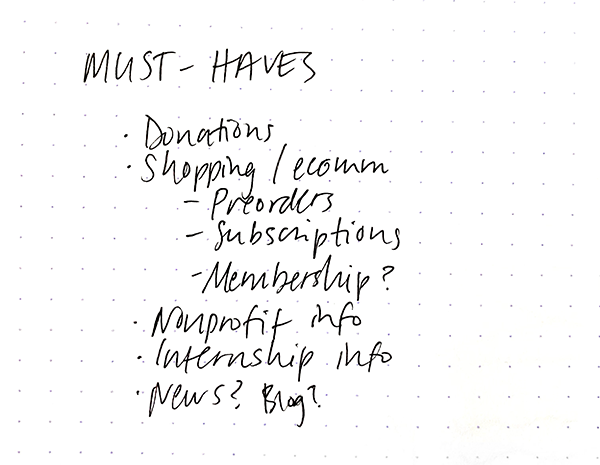 MUST - HAVES
· Donations
· Shopping / ecomm
- Preorders
- Subscriptions
- Membership?
· Nonprofit info
· Internship info
· News? Blog?